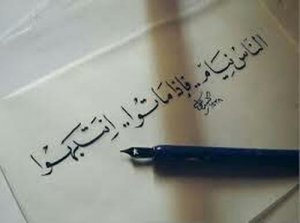 النَّاسُ نِيَامٌ.. فَإِذَا مَاتُوا.. اِنْتَبَهُوا